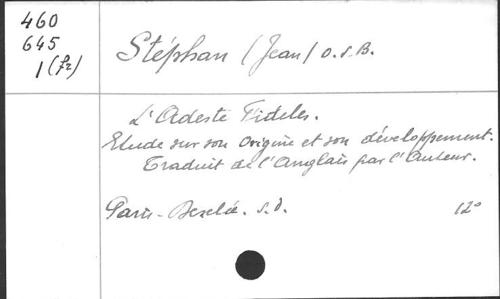 460
645
1 (fr)
Stéphan (Jean) O.S.B.
L'Adeste Fideles.
Etude sur son origine et son développement.
Traduit de l'Anglais par l'Auteur.
Paris - s.d. 12°